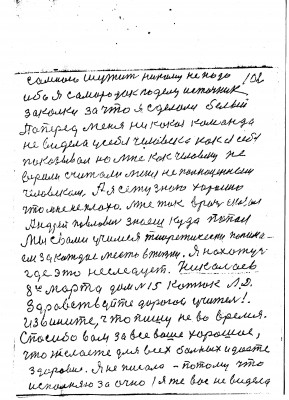 самого шумит никому не надо 102
ибо я самородок подему источник
закалки за что я сделали белый
Паперед меня никакая команда
не видела у себя человека как я себя
показывал но мне как человеку не
верили считали меня не полноценным
человеком. А я сету знаю хорошо
что мне не плохо. Мне так врач сказал
Андрей Павлович знаеш куда попал
Мы с вами учимся теоретически
см за каждое место в жизни. Я нахожусь
где это неследует. Николаев
8е марта дом 15 Коток Л.Д.
Здравствуйте дорогой учитель!.
Извините, что пишу не во время.
Спасибо вам за все ваше хорошее,
что желаете для всех больных и даете
здоровие. Я не писала - потому что
исполняю заочно! Я же вас не видела